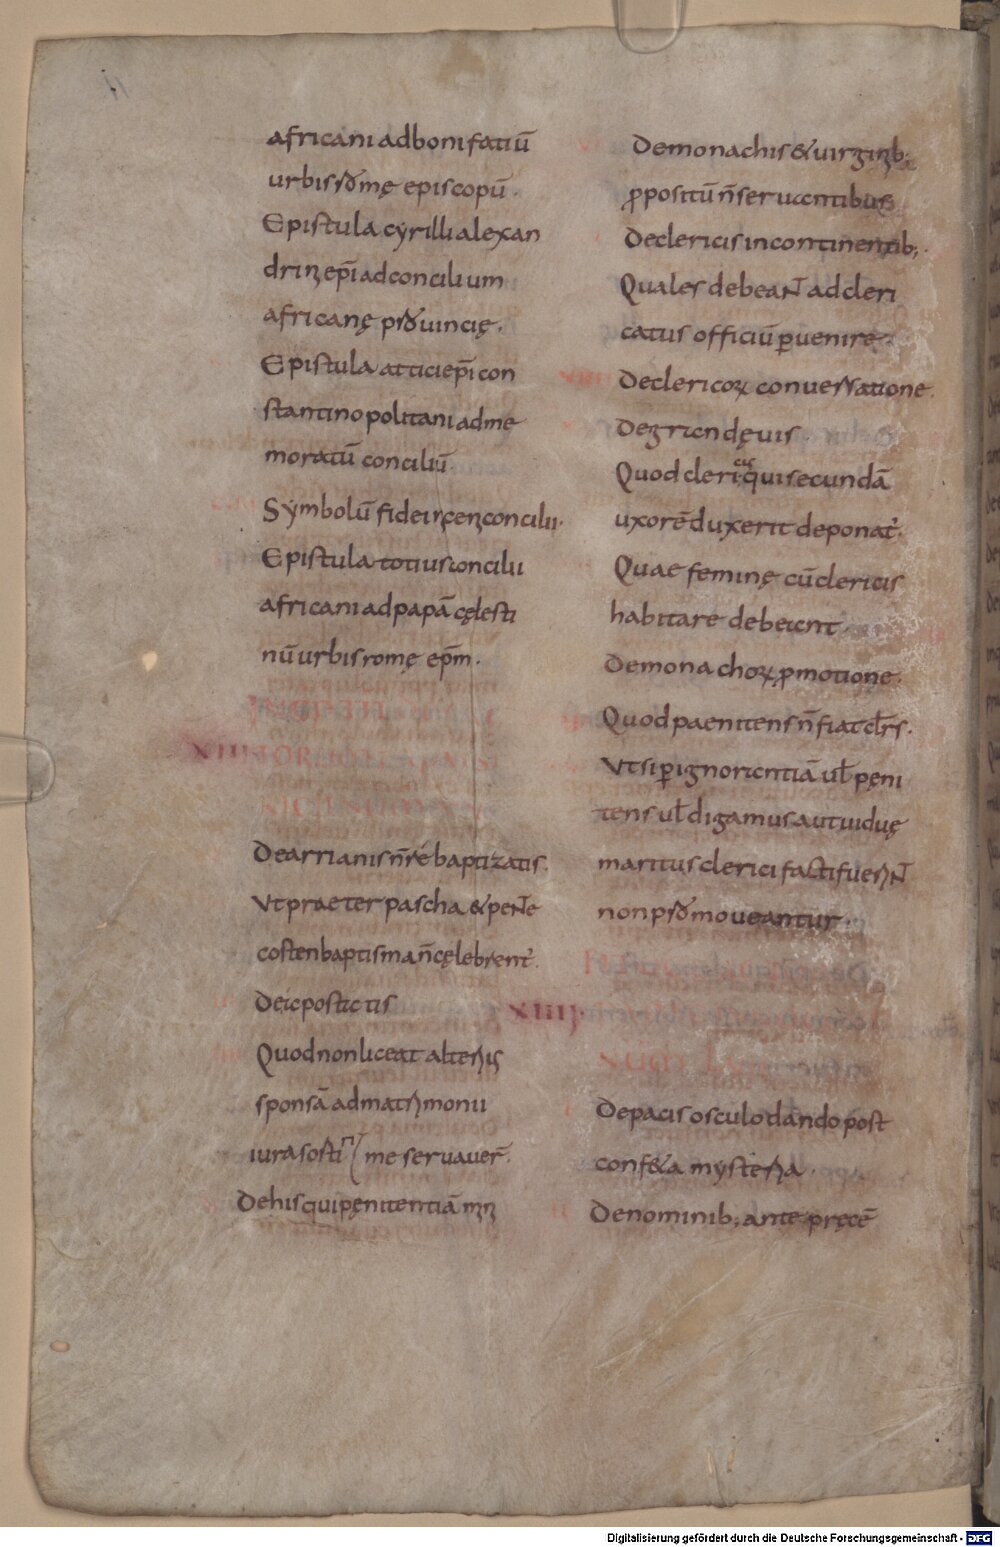 africani ad bonifatiū
urbis romę episcopū.
Epistula cyrilli alexan
drini ep̄i ad concilium
africanę prouincię.
Epistula attici ep̄i con
stantinopolitani ad me
moratū conciliū
Symbolū fidei niceni concilii.
Epistula totius concilii
africani ad papā cęlesti
nū urbis romę ep̄m.
XIII
De arrianis n̄ rebaptizatis.
Ut praeter pascha & pente
costen baptisma n̄ cęlebrent̄.
De
Quod non liceat alterius
sponsā ad matrimonii
iura sortiri
De his qui pęnitentiā
De monachis & uirginib;
ꝓpositū n̄ seruantibus
De clericis incontinentib;.
Quales debeant ad cleri
catus officiū ꝑuenire.
De clericoꝝ conuersatione.
Quod clericus qui secundā
uxorē duxerit deponat̄.
Quae feminę cū clericis
habitare debeant.
De monachoꝝ ꝓmotione.
Quod paenitens n̄ fiat cl̄rs.
Ut si ꝑ ignorantiā ul̄ pęni
tens ul̄ digamus aut uiduę
maritus clerici facti fuerint
non promoueantur.
XIIII
De pacis osculo dando post
confecta mysteria.
De nominib; ante precē
Digitalisierung gefördert durch die Deutsche Forschungsgemeinschaft - DFG